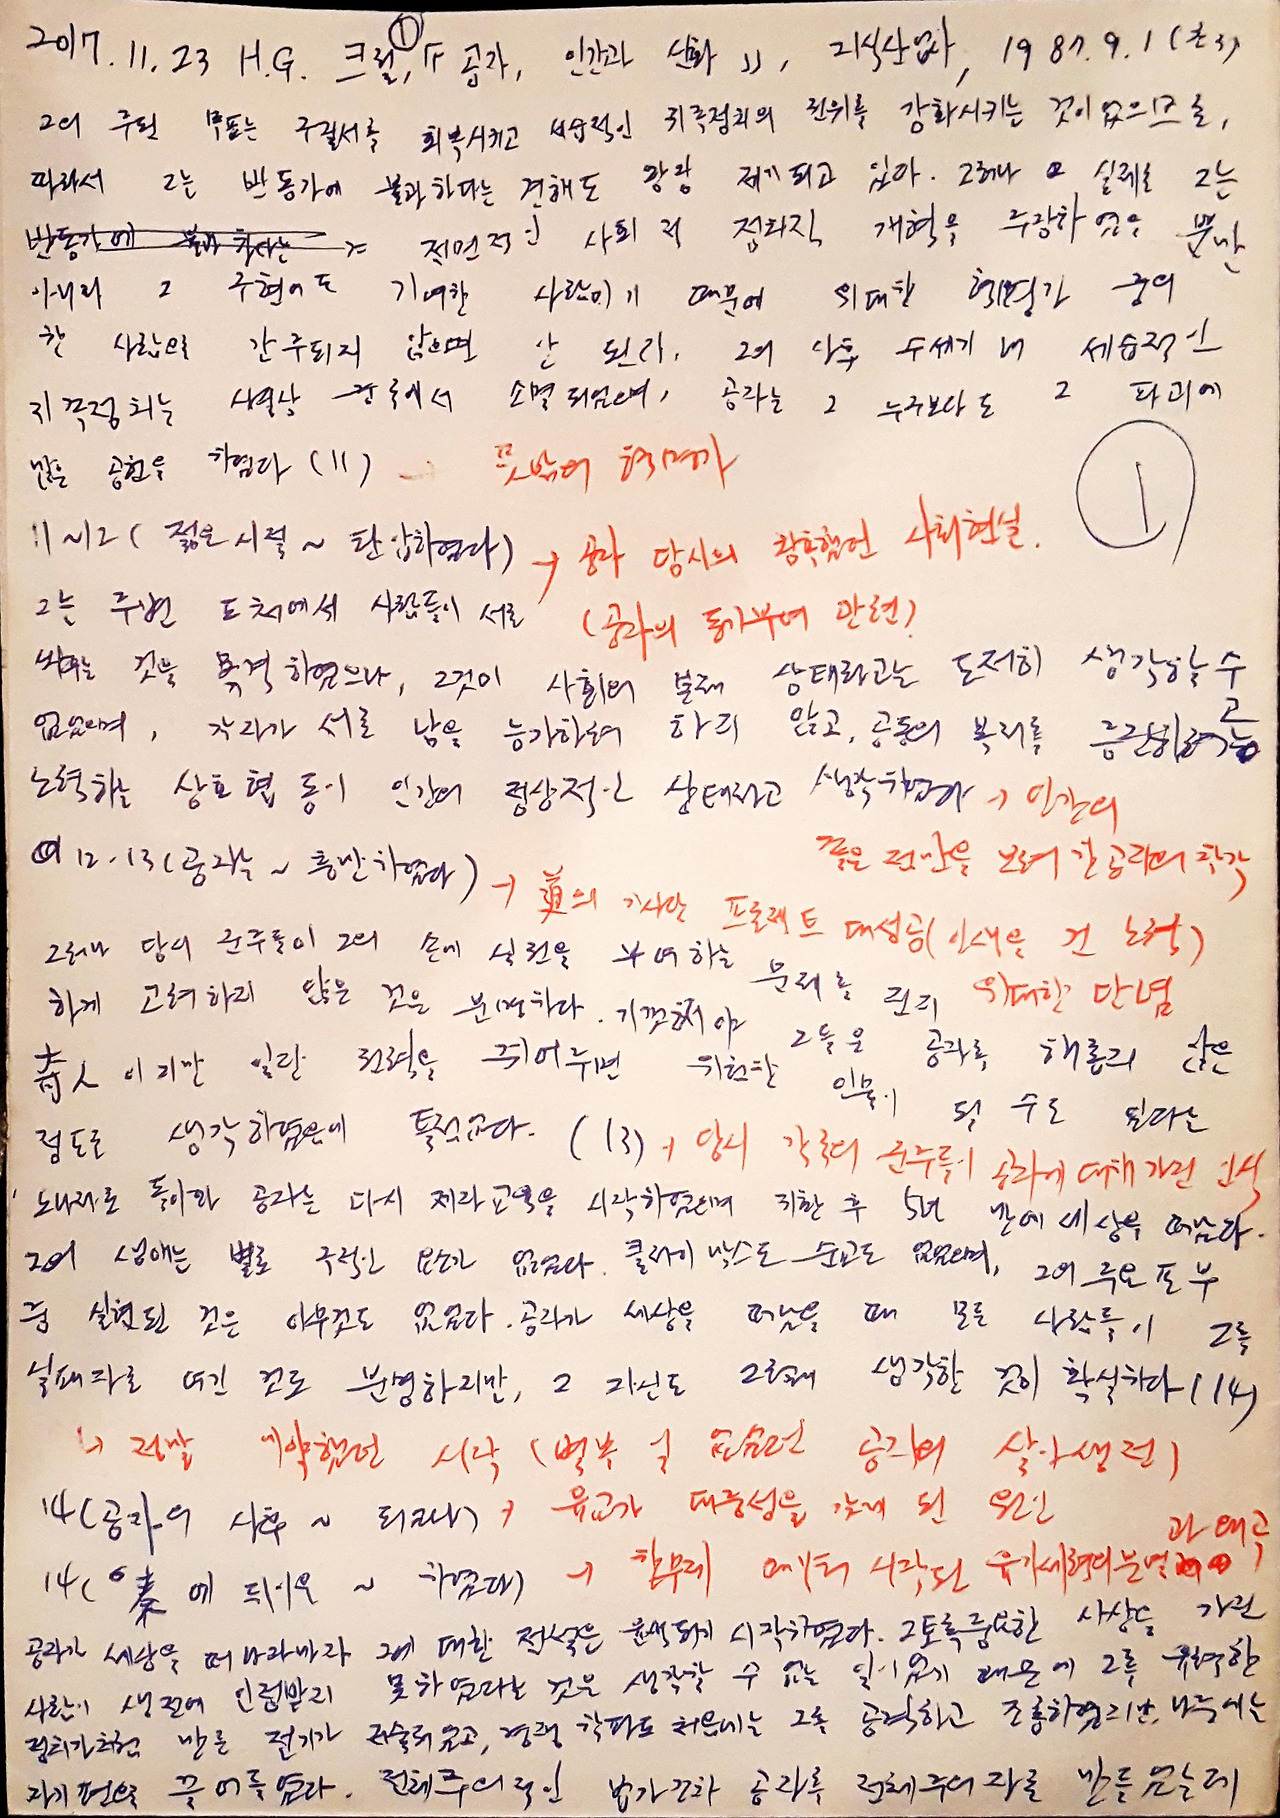 ①
2017.11.23 H.G. 크릴, 『공자, 인간과 신화』, 지식산업사, 1987.9.1 (초3)
그의 주된 목표는 구질서를 회복시키고 세습적인 귀족정치의 권위를 강화시키는 것이었으므로,
따라서 그는 반동가에 불과하다는 견해도 왕왕 제기되고 있다. 그러나 실제로 그는
반동가에 불과하다는 전면적인 사회적 정치적 개혁을 주장하였을 뿐만
아니라 그 구현에도 기여한 사람이기 때문에 위대한 혁명가 중의
한 사람으로 간주되지 않으면 안 된다. 그의 사후 수세기 내 세습적인
귀족정치는 사실상 중국에서 소멸되었으며, 공자는 그 누구보다도 그 파괴에
많은 공헌을 하였다 (11) → 뜻밖의 혁명가
①
11~12 ( 젊은 시절 ~ 탄압하였다) → 공자 당시의 참혹했던 사회현실.
(공자의 동기부여 관련)
그는 주변 도처에서 사람들이 서로
싸우는 것을 목격하였으나, 그것이 사회의 본래 상태라고는 도저히 생각할 수
없었으며, 각자가 서로 남을 능가하려 하지 않고, 공동의 복리를 증진하려고
노력하는 상호협동이 인간의 정상적인 상태라고 생각하였다 → 인간의
좋은 면만을 보려 한 공자의 착각
12-13 (공자는 ~ 흥분하였다) → 道의 기사단 프로젝트 대성공 (인생을 건 노력)
위대한 단념
그러나 당시 군주들이 그의 손에 실권을 부여하는 문제를 진지
하게 고려하지 않은 것은 분명하다. 기껏해야 그들은 공자를, 해롭지 않은
奇人이지만 일단 권력을 쥐어주면 위험한 인물이 될 수도 있다는
정도로 생각하였음에 틀림없다. (13) → 당시 각국의 군주들이 공자에 대해 가진 인식
노나라로 돌아와 공자는 다시 제자교육을 시작하였으며 귀환 후 5년 만에 세상을 떠났다.
그의 생애는 별로 극적인 요소가 없었다. 클라이막스도 순교도 없었으며, 그의 주요 포부
중 실현된 것은 아무것도 없었다. 공자가 세상을 떠났을 때 모든 사람들이 그를
실패자로 여긴 것도 분명하지만, 그 자신도 그렇게 생각한 것이 확실하다 (14)
↳ 정말 미약했던 시작 (별볼 일 없었던 공자의 살아생전)
14 (공자의 사후 ~ 되었다) → 유교가 대중성을 갖게 된 원인
14 (秦에 뒤이은 ~ 하였다) → 한무제 때부터 시작된 유가세력의 분열과 왜곡
공자가 세상을 떠나자마자 그에 대한 전설은 윤색되기 시작하였다. 그토록 중요한 사상을 가진
사람이 생전에 인정받지 못하였다는 것은 생각할 수 없는 일이었기 때문에 그를 유력한
정치가처럼 만든 전기가 저술되었고, 경쟁 학파도 처음에는 그를 공격하고 조롱하였지만, 나중에는
자기편으로 끌어들였다. 전체주의적인 법가조차 공자를 전체주의자로 만들었는데